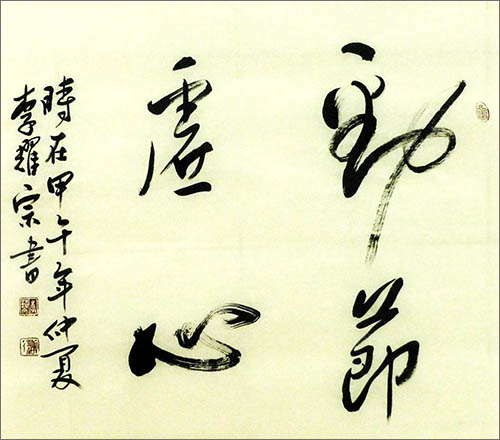 勁節
虛心
時在甲午年仲夏
李耀宗書